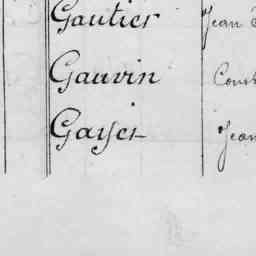 Gautier Jean
Gauvin
Gayet Jean